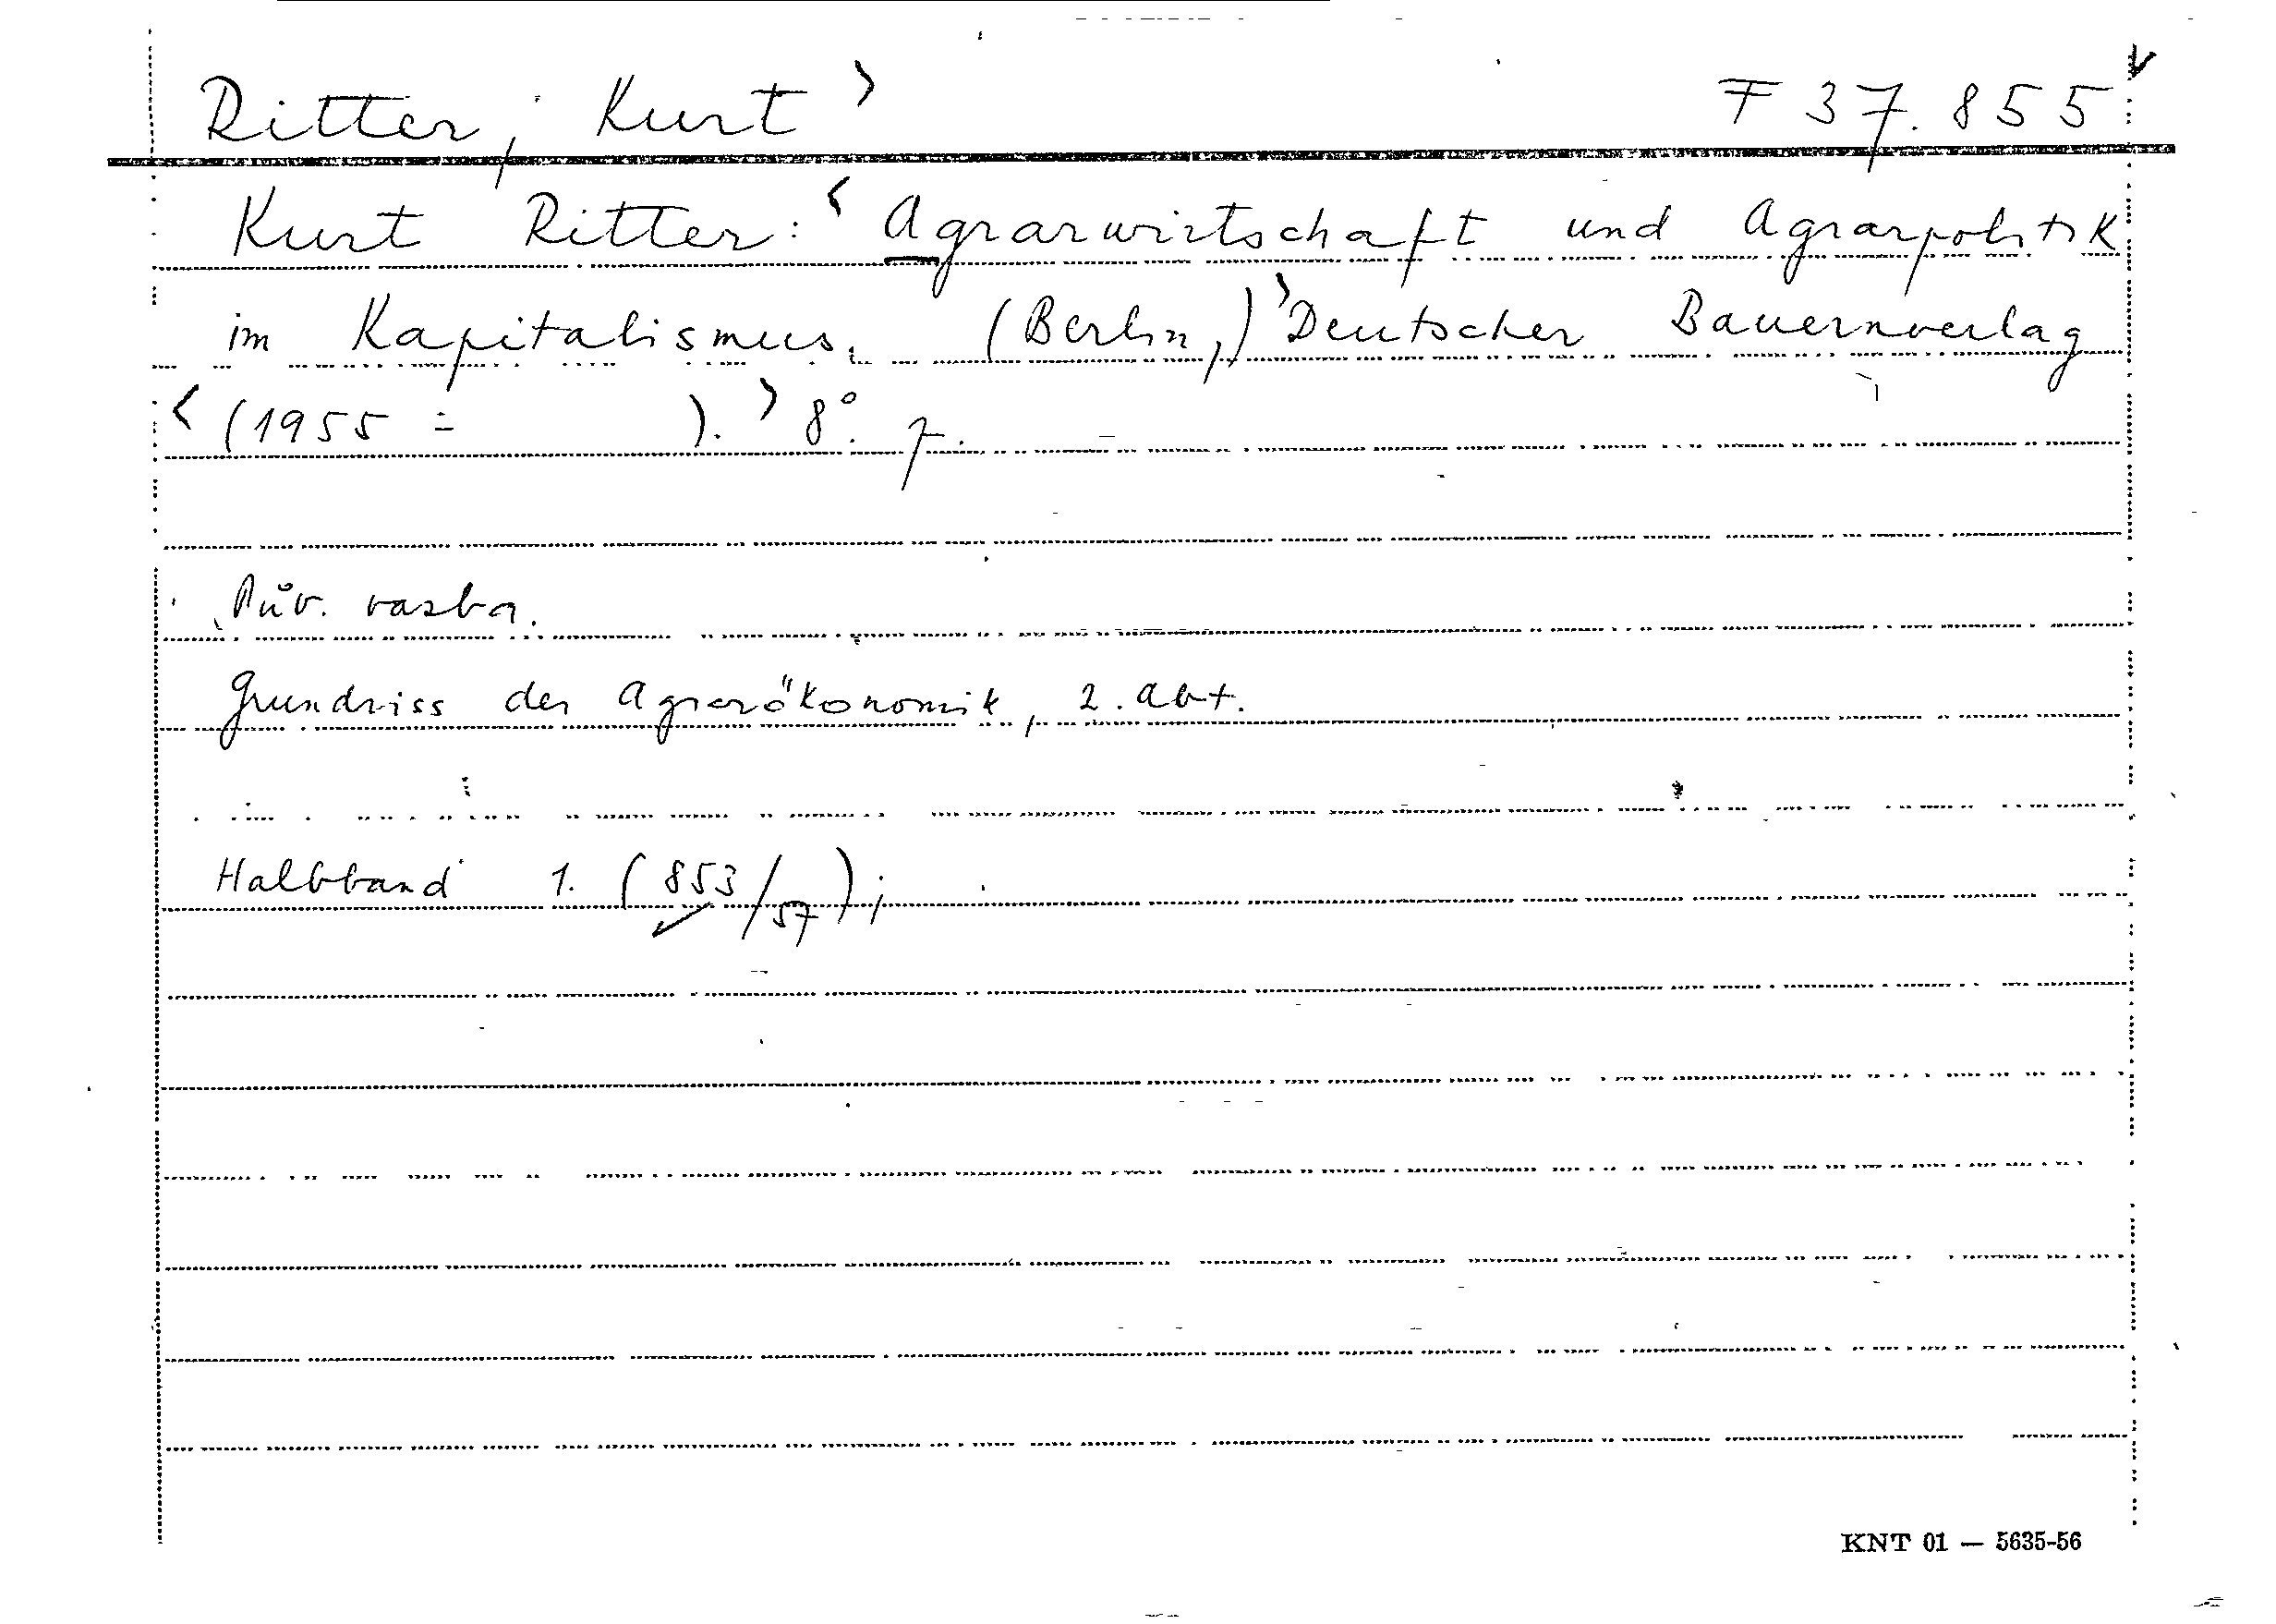 Ritter, Kurt > F 37.855
Kurt Ritter: < Agrarwirtschaft und Agrarpolitik
im Kapitalismus. (Berlin,) > Deutscher Bauernverlag
< (1955 - ). > 8°. 7.
Pův. vazba.
Grundriss der Agrarökonomik, 2. Abt.
Halbband 1. (853/57);
KNT 01 — 5635-56